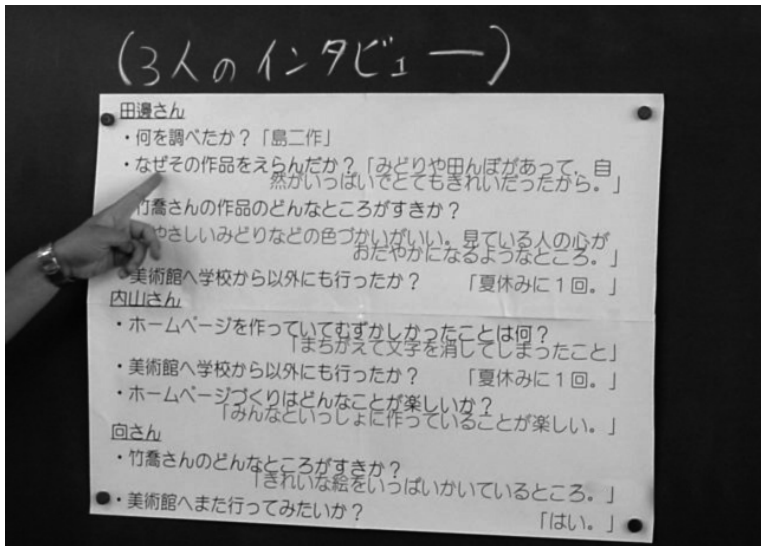 (3人のインタビュー)
田邊さん
・何を調べたか？「島二作」
・なぜその作品をえらんだか？「みどりや田んぼがあって、自
然がいっぱいでとてもきれいだったから。」
竹喬さんの作品のどんなところがすきか？
やさしいみどりなどの色づかいがいい。見ている人の心が
おだやかになるようなところ。」
・美術館へ学校から以外にも行ったか？　「夏休みに１回。」
内山さん
・ホームページを作っていてむずかしかったことは何？
「まちがえて文字を消してしまったこと」
・美術館へ学校から以外にも行ったか？　「夏休みに１回。」
・ホームページづくりはどんなことが楽しいか？
「みんなといっしょに作っていることが楽しい。」
向さん
・竹喬さんのどんなところがすきか？
「きれいな絵をいっぱいかいているところ。」
・美術館へまた行ってみたいか？　「はい。」